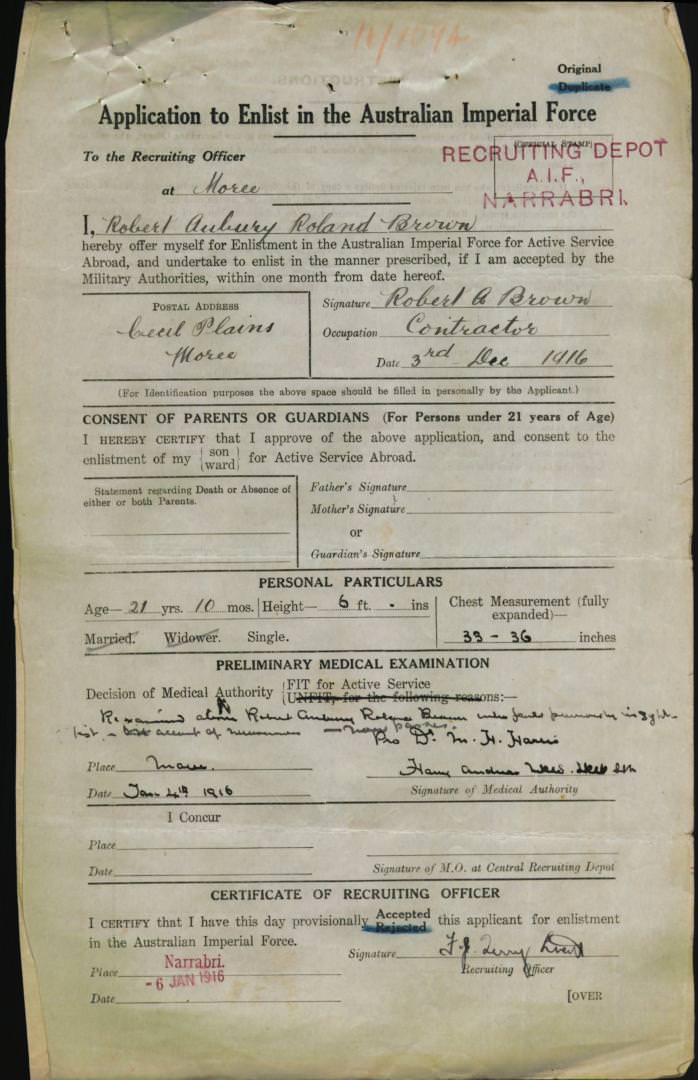 11/1092
Original
Duplicate
Application to Enlist in the Australian Imperial Force
(OFFICIAL STAMP)
RECRUITING DEPOT
A.I.F.,
NARRABRI.
To the Recruiting Officer
at Moree
I, Robert Aubury Roland Brown
hereby offer myself for Enlistment in the Australian Imperial Force for Active Service
Abroad, and undertake to enlist in the manner prescribed, if I am accepted by the
Military Authorities, within one month from date hereof.
POSTAL ADDRESS
Cecil Plains
Moree
Signature Robert A Brown
Occupation Contractor
Date 3rd Dec 1916
(For Identification purposes the above space should be filled in personally by the Applicant.)
CONSENT OF PARENTS OR GUARDIANS (For Persons under 21 years of Age)
I HEREBY CERTIFY that I approve of the above application, and consent to the
enlistment of my {son ward} for Active Service Abroad.
Statement regarding Death or Absence of
either or both Parents.
Father's Signature
Mother's Signature
or
Guardian's Signature
PERSONAL PARTICULARS
Age— 21 yrs. 10 mos. Height— 6 ft. - ins
Chest Measurement (fully
expanded)—
33 - 36 inches
Married. Widower. Single.
PRELIMINARY MEDICAL EXAMINATION
Decision of Medical Authority {FIT for Active Service
UNFIT, for the following reasons:—
Robert Aubury
account of
Pro Dr. M. H. Harris
Place Moree
Date Jan 4th 1916
Signature of Medical Authority
I Concur
Place
Date
Signature of M.O. at Central Recruiting Depot
CERTIFICATE OF RECRUITING OFFICER
I CERTIFY that I have this day provisionally Accepted Rejected this applicant for enlistment
in the Australian Imperial Force.
Signature F. J. Terry Lieut
Recruiting Officer
Place Narrabri.
-6 JAN 1916
Date
[OVER